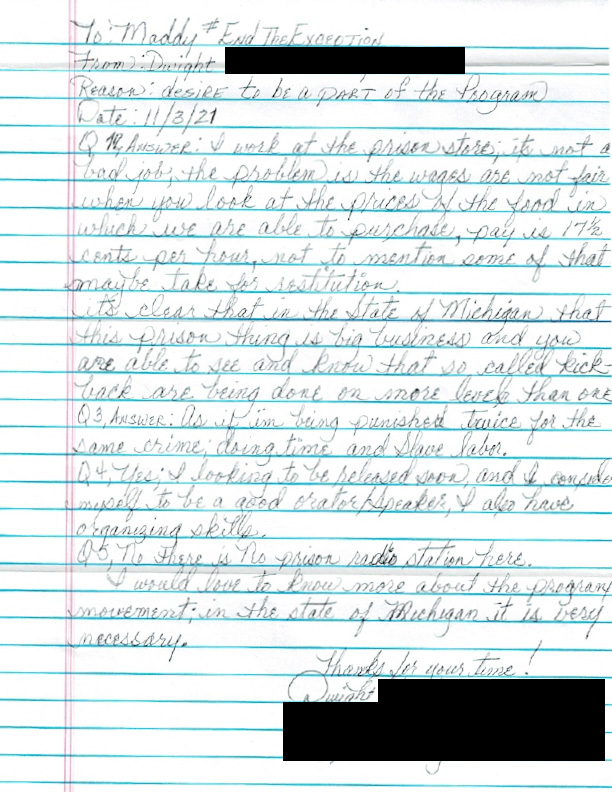 To: Maddy #End The Exception
From: Dwight
Reason: desire to be a part of the Program
Date: 11/3/21
Q 1/2, Answer: I work at the prison store; its not a
bad job; the problem is the wages are not fair
when you look at the prices of the food in
which we are able to purchase, pay is 17 1/2
cents per hour, not to mention some of that
maybe take for restitution.
it's clear that in the State of Michigan that
this prison thing is big business and you
are able to see and know that so called kick-
back are being done on more levels than one
Q 3, Answer: As if im being punished twice for the
same crime; doing time and slave labor.
Q 4, Yes; I looking to be released soon, and I conside
myself to be a good orator/speaker, I also have
organizing skills.
Q 5, No there is no prison radio station here.
I would love to know more about the program
movement; in the state of Michigan it is very
necessary.
Thanks for your time!
Dwight